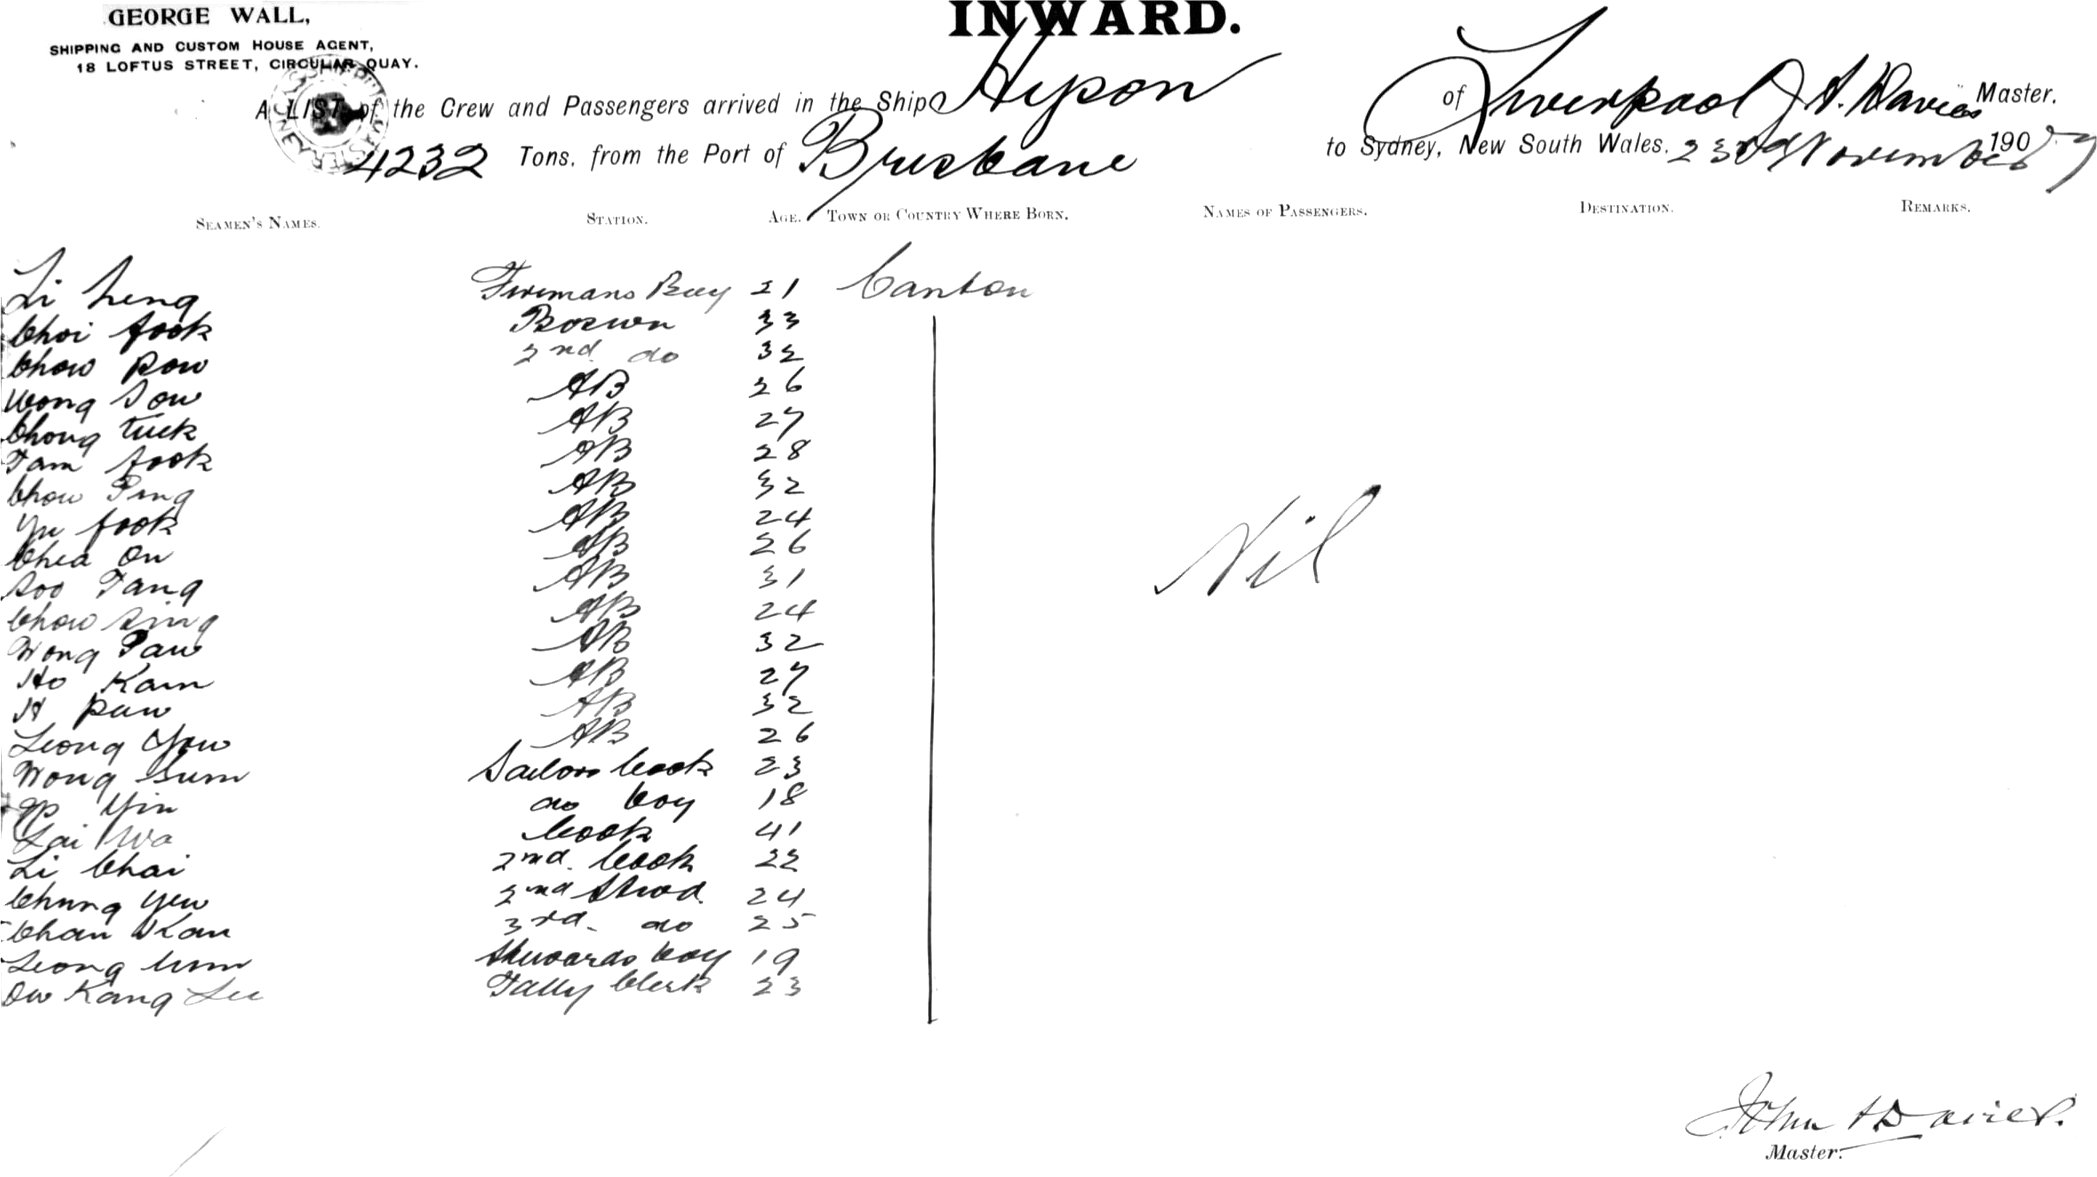 GEORGE WALL,
SHIPPING AND CUSTOM HOUSE AGENT,
18 LOFTUS STREET, CIRCULAR QUAY.
INWARD.
A LIST of the Crew and Passengers arrived in the Ship Hyson of Liverpool J A. Davies Master,
4232 Tons, from the Port of Brisbane to Sydney, New South Wales, 23rd November 1907
SEAMEN'S NAMES. STATION. AGE. TOWN OR COUNTRY WHERE BORN. NAMES OF PASSENGERS. DESTINATION. REMARKS.
Li heng Firemans Boy 21 Canton
Choi fook Boswn 33
Chow Pow 2nd. do 32
Wong Sow AB 26
Chong tuck AB 27
Tam fook AB 28
Chow Ping AB 32
Yu fook AB 24
Chea On AB 26
Soo Tang AB 31
Chow Sing AB 24
Wong Paw AB 32
Ho Kam AB 27
H paw AB 32
Leong You AB 26
Wong Sum Sailors Cook 23
Yin do boy 18
Lai Wa Cook 41
Li Chai 2nd. Cook 22
Chung Yew 2nd Stwd. 24
Chan Kan 3rd. do 25
Leong Stewards boy 19
Ow Kang Lee Tally Clerk 23
Nil
John A Davies.
Master.